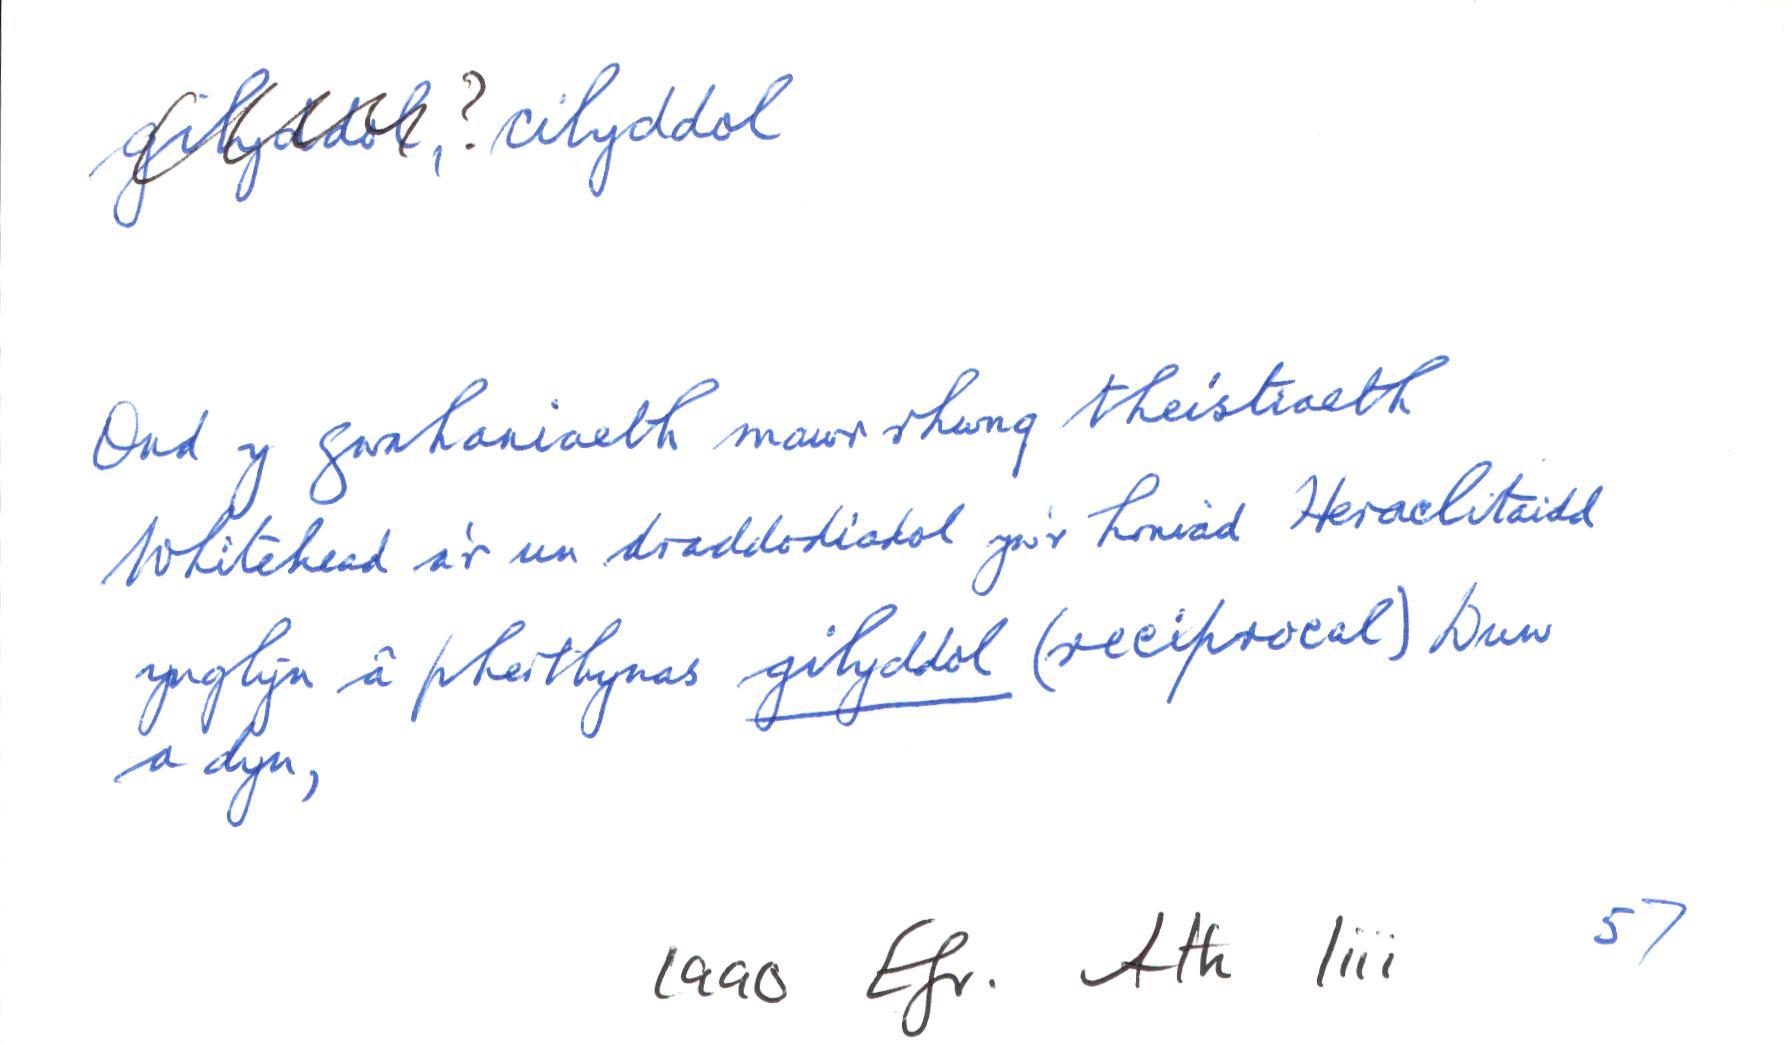 gilyddol, ? cilyddol
Ond y gwahaniaeth mawr rhwng theistiaeth
Whitehead a'r un draddodiadol yw'r honiad Heraclitaidd
ynglŷn â pherthynas gilyddol (reciprocal) Duw
a dyn,
1990 Efr. Ath liii 57